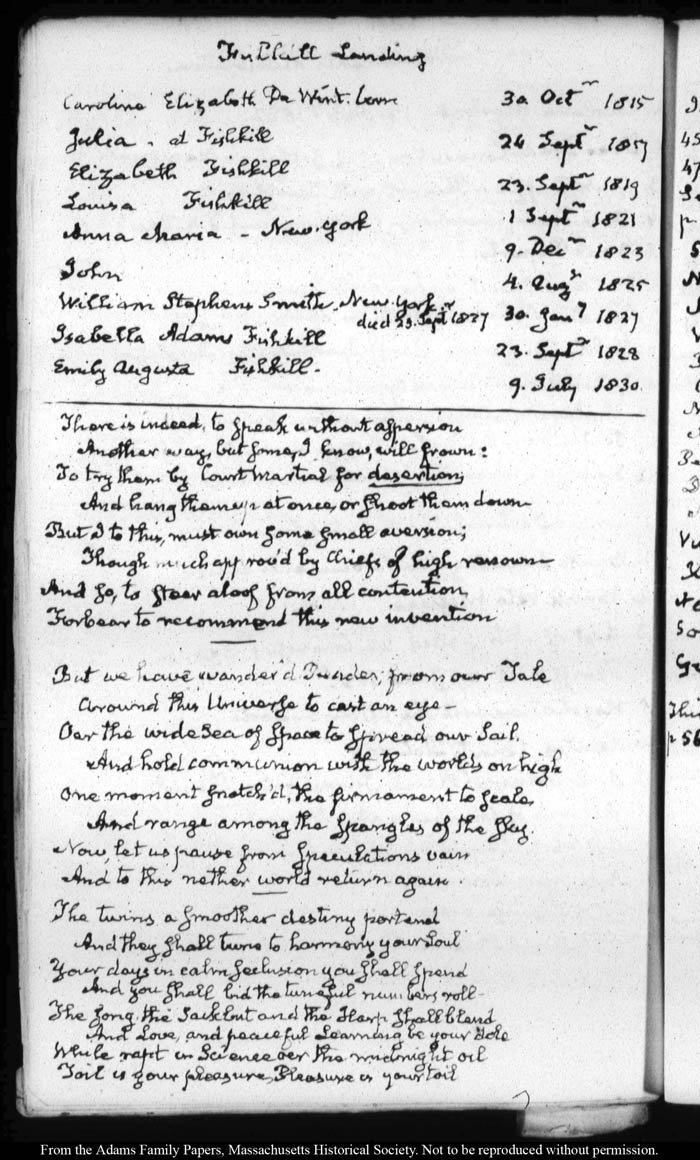 Fishkill Landing
Caroline Elizabeth De Wint. born 30 Octr 1815
Julia - at Fishkill 24 Septr 1817
Elizabeth Fishkill 23. Septr 1819
Louisa Fishkill 1 Septr 1821
Anna Maria - New-York 9. Decr 1823
John 4. Augt 1825
William Stephens Smith. New-York. 30. Jany 1827
died 29. Septr 1827
Isabella Adams Fishkill 23. Septr 1828
Emily Augusta Fishkill - 9. July 1830
There is indeed, to speak without aspersion
Another way, but some, I know, will frown:
To try them by Court Martial for desertion;
And hang them up at once, or shoot them down
But I to this, must own some small aversion;
Though much approv'd by Chiefs of high renown
And so, to steer aloof from all contention,
Forbear to recommend this new invention
But we have wander'd Dundas; from our Tale
Arround this Universe to cast an eye -
Oer the wide Sea of Space to spread our Sail.
And hold communion with the worlds on high
One moment snatch'd, the firmament to scale,
And range among the spangles of the sky.
Now, let us pause from speculations vain
And to this nether world return again.
The twins a smoother destiny portend
And they shall tune to harmony your Soul
Your days in calm seclusion you shall spend
And you shall bid the tuneful numbers roll -
The song, the Sackbut and the Harp shall blend
And Love, and peaceful Learning be your
While rapt in Science oer the midnight oil
Toil is your pleasure, Pleasure is your toil
From the Adams Family Papers, Massachusetts Historical Society. Not to be reproduced without permission.